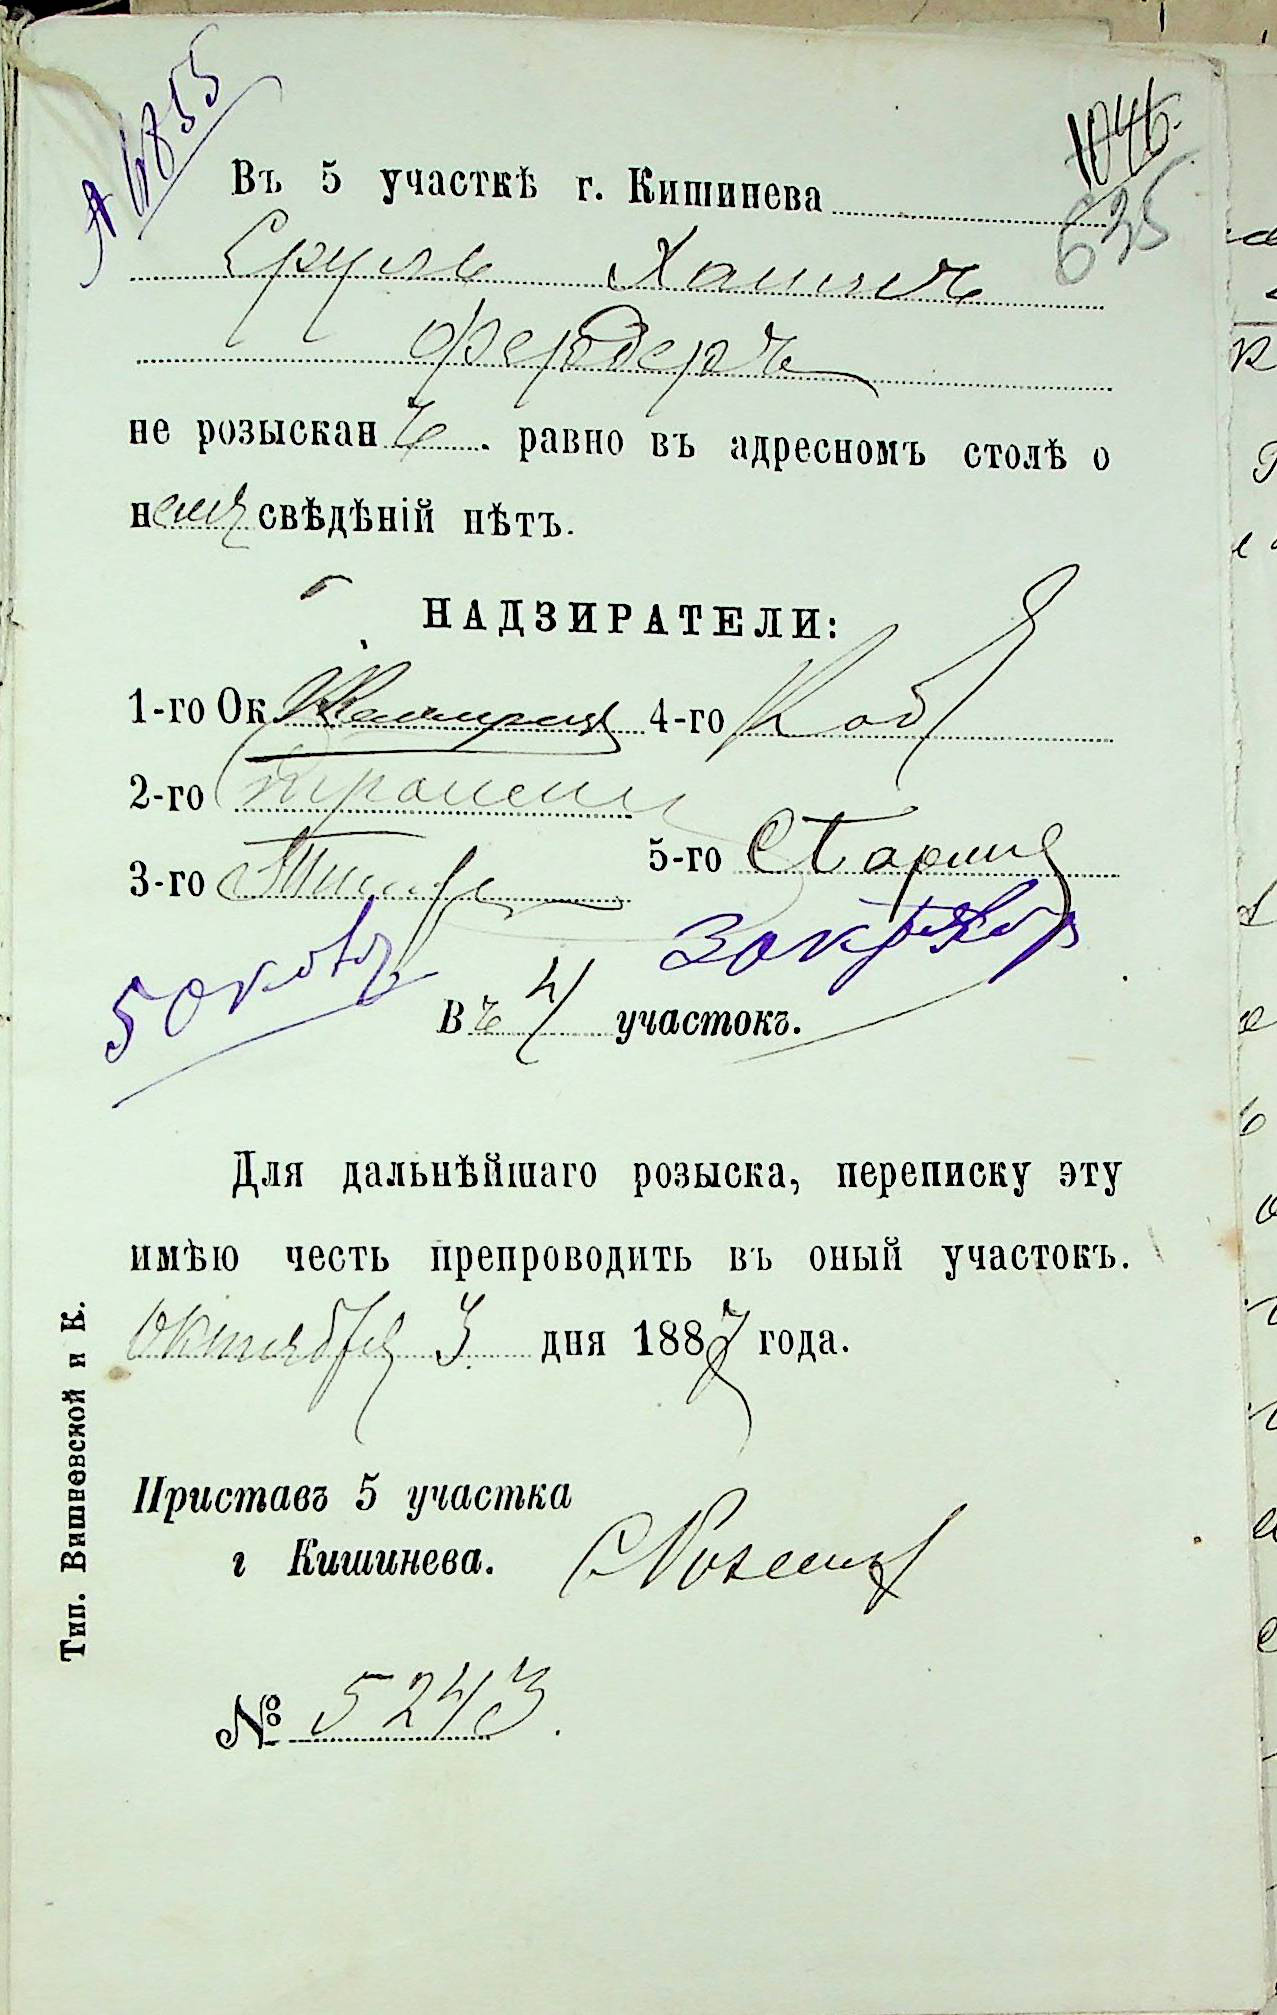 № 4855
1046.
635
Въ 5 участкѣ г. Кишинева
Сруль Хаимъ
Фердеръ
не розысканъ. равно въ адресномъ столѣ о
немъ свѣдѣній нѣтъ.
НАДЗИРАТЕЛИ:
1-го Ок
4-го
2-го
3-го
5-го
5 окт
3 октября
Въ 4 участокъ.
Для дальнѣйшаго розыска, переписку эту
имѣю честь препроводить въ оный участокъ.
Октября 3 дня 1887 года.
Приставъ 5 участка
г Кишинева.
№ 5243.
Тип. Вишневской и К.